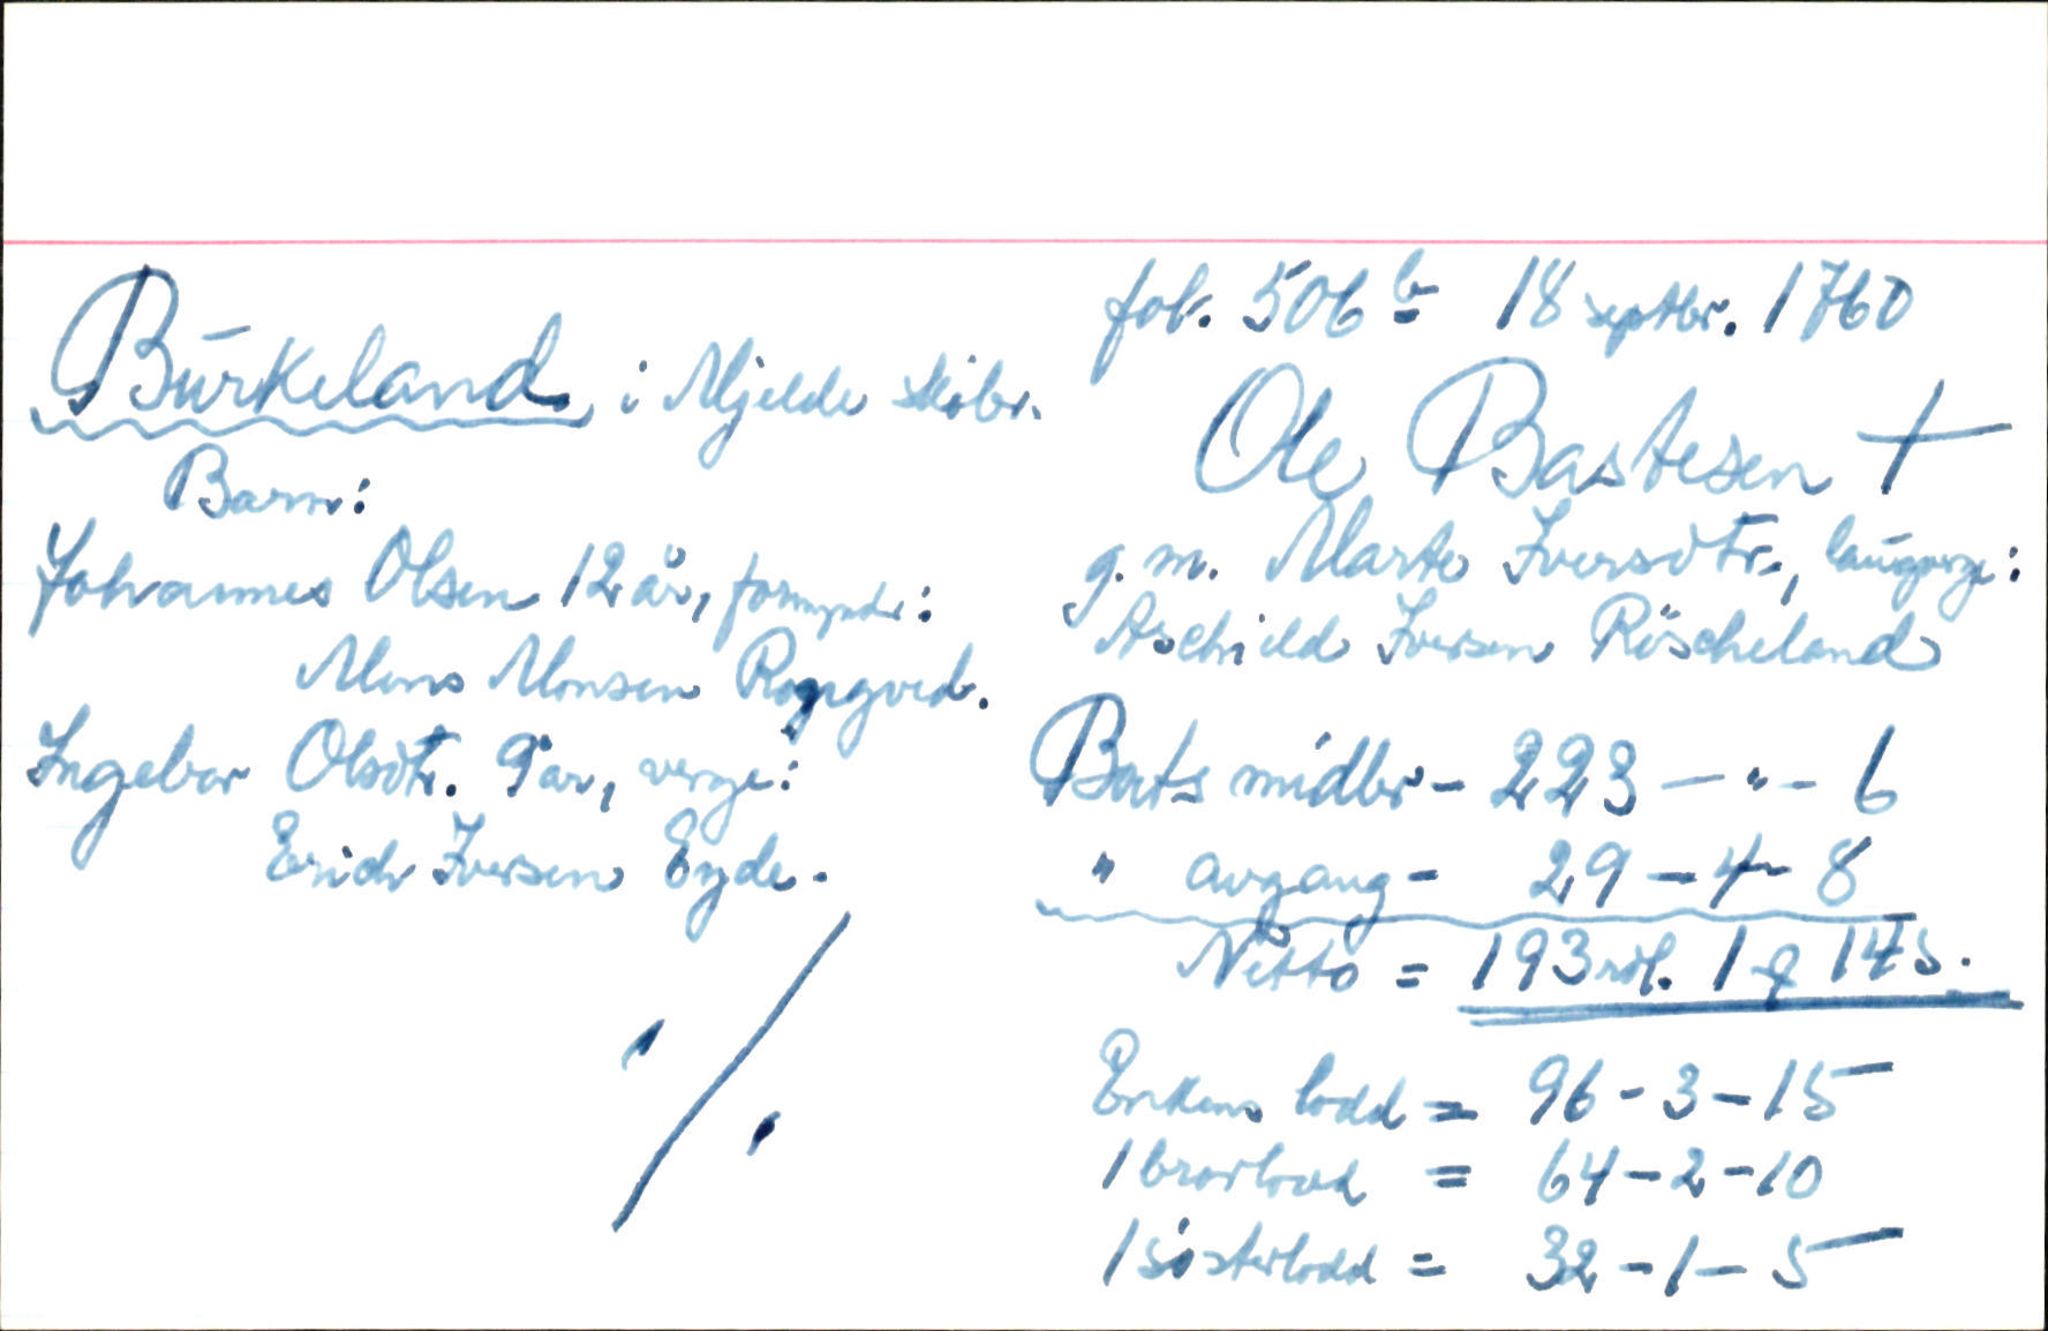 Burkeland i Mjelde skibr.
Barn:
Johannes Olsen 12 år, formyndr:
Mons Monsen Rongved.
Ingebor Olsdtr. 9 år, verge:
Erich Iversen Eyde.
fol. 506 b 18 septbr. 1760
Ole Bastesen †
g. m. Marte Iversdtr., laugverge:
Aschield Iversen Röscheland
Boets midler - 223 - " - 6
" avgang - 29 - 4 - 8
Netto = 193 rdl. 1 q 14 s.
Enkens lodd = 96 - 3 - 15
1 brorlodd = 64 - 2 - 10
1 sösterlodd = 32 - 1 - 5